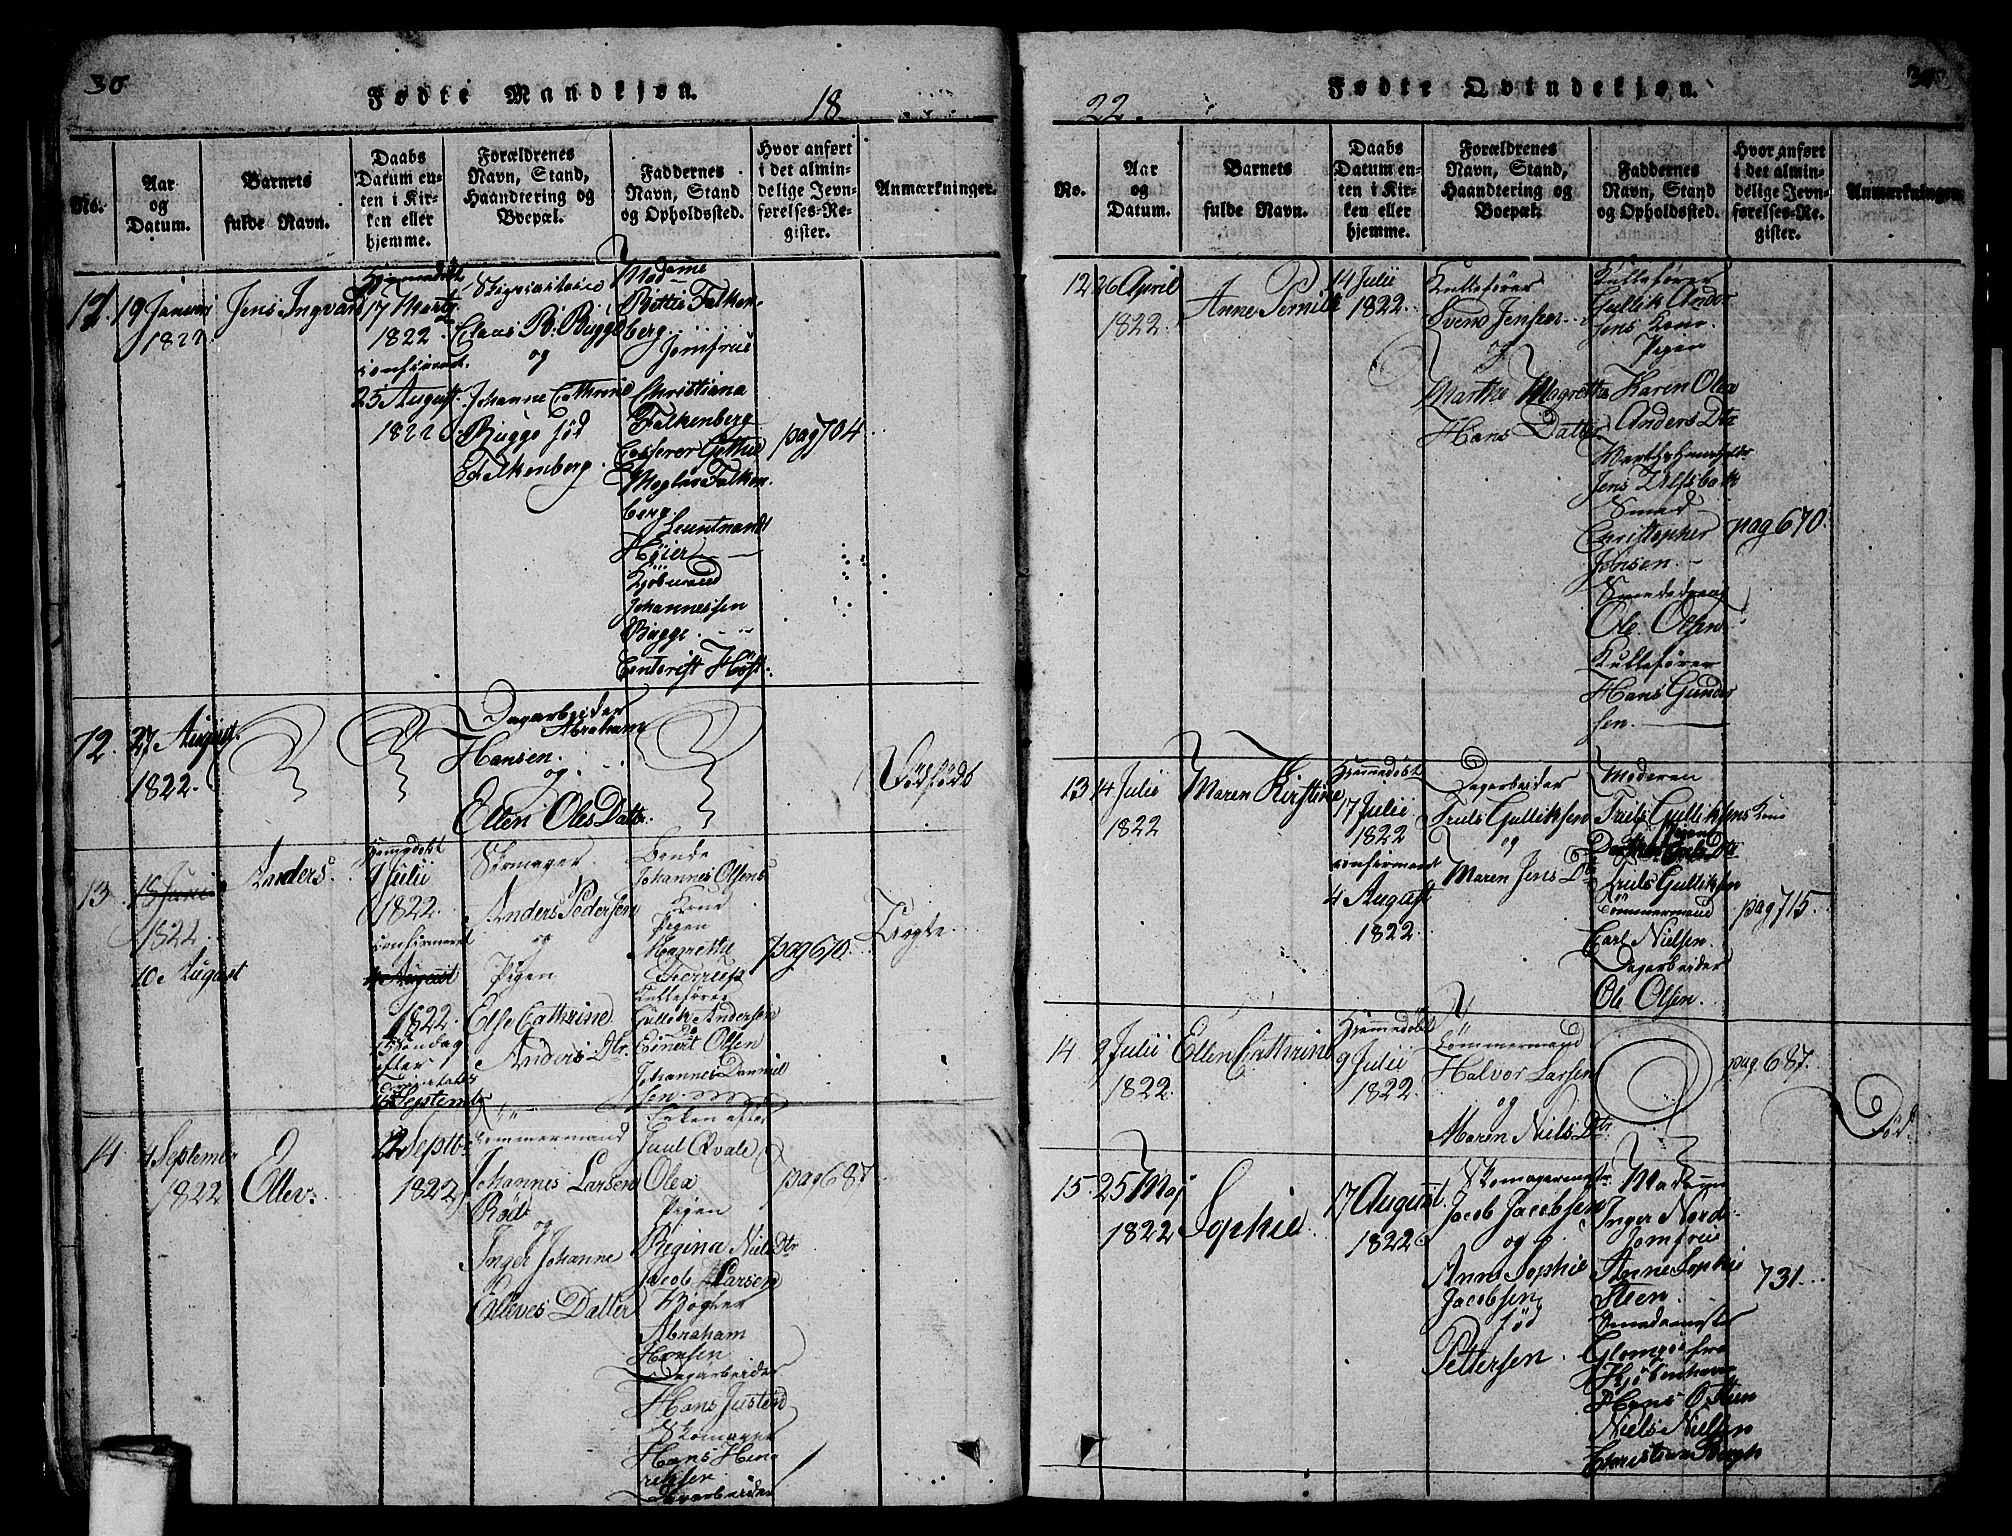 30
Fødte Mandkjøn.
18
No.
Aar
og
Datum.
Barnets
fulde Navn.
Daabs
Datum en-
ten i Kir-
ken eller
hjemme.
Forældrenes
Navn, Stand,
Haandtering og
Boepæl.
Faddernes
Navn, Stand
og Opholdssted.
Hvor anført
i det almin-
delige Jevn-
førelses-Re-
gister.
Anmærkninger.
19 Januari
1822
Jens Ingvard
Hjemmedøbt
17 Marty
1822.
confirmeret.
25 August.
1822
Claas B. Bugge
og
Johanne Cathrine
Bugge fød
Falkenberg.
Madame
Falken-
berg
Jomfrue
Christiana
Falkenberg
Mægler Falken-
berg.
Leutnandt
Høier
Kjøbmand
Johannessen
Bugge.
Høst.
pag 704
12.
27 August.
1822.
Dagarbeider
Abraham
Hansen.
og
Ellen Oles Datter.
Dødfødt
13.
15 Juni
1822.
10. August
Anders.
Hjemedøbt
7 Julii
1822.
confirmeret
4 August
1822.
Søndag
efter
Septembr
Anders Pedersen
og
Pigen
Else Cathrine
Anders Dtr.
Johannes Olsens
Kone
Pigen
Magrethe
Kullefører
Gullek Andersen
Einert Olsen
Johannes Danniel
sen.
pag 670.
Uægte.
14
4 September
1822
Ellev.
22 Septbr
1822
Tømmermand
Johannes Larsen
Røds
og
Inger Johanne
Elleves Datter
Enken efter
Juul Qvale
Olea
Pigen
Regina Niels Dtr
Jacob Larsen
Bøgter
Abraham
Hansen
Dagarbeider
Hans Justen
Skomager
Hans Hen-
richsen
Dagarbeider
pag 687
Fødte Qvindekjøn.
22.
No.
Aar
og
Datum.
Barnets
fulde Navn.
Daabs
Datum en-
ten i Kir-
ken eller
hjemme.
Forældrenes
Navn, Stand,
Haandtering og
Boepæl.
Faddernes
Navn, Stand
og Opholdssted.
Hvor anført
i det almin-
delige Jevn-
førelses-Re-
gister.
Anmærkninger.
12
26 April
1822.
Anne Pernille
14 Julii
1822.
Kullefører
Svend Jensen
og
Marthe Magretha
Hans Datter
Kullefører
Gullik Ander
sens Kone.
Pigen
Karen Olea
Anders Dtr
Smed
Christopher
Jensen.
Smededreng
Ole Olsen
Kullefører
Hans Gunder
sen.
pag 670.
13
14 Julii
1822
Maren Kirstine
Hjemmedøbt
17 Julii
1822
confirmeret
4 August
1822.
Dagarbeider
Truls Gulliksen
og
Maren Jens Dtr
Moderen
Truls Gulliksens Kone
Pigen
Truls Gulliksen
Tømmermand
Carl Nielsen.
Dagarbeider
Ole Olsen.
pag 715.
14
9 Julii
1822.
Ellen Cathrine
Hjemmedøbt
9 Julii
1822.
Tømmermand
Halvor Larsen
og
Maren Niels Dtr.
pag 687.
Død.
15.
25 Maj
1822
Sophie.
17 August.
1822
Skomagermestr.
Jacob Jacobsen
og
Anne Sophie
Jacobsen
fød
Pettersen.
Madame
Inger Nord
Jomfrue
Anne Sophie
Steen.
Smedemester
fra
Kjøbenhavn
Hans O Steen
Niels Nielsen
Christian Bergh
731.